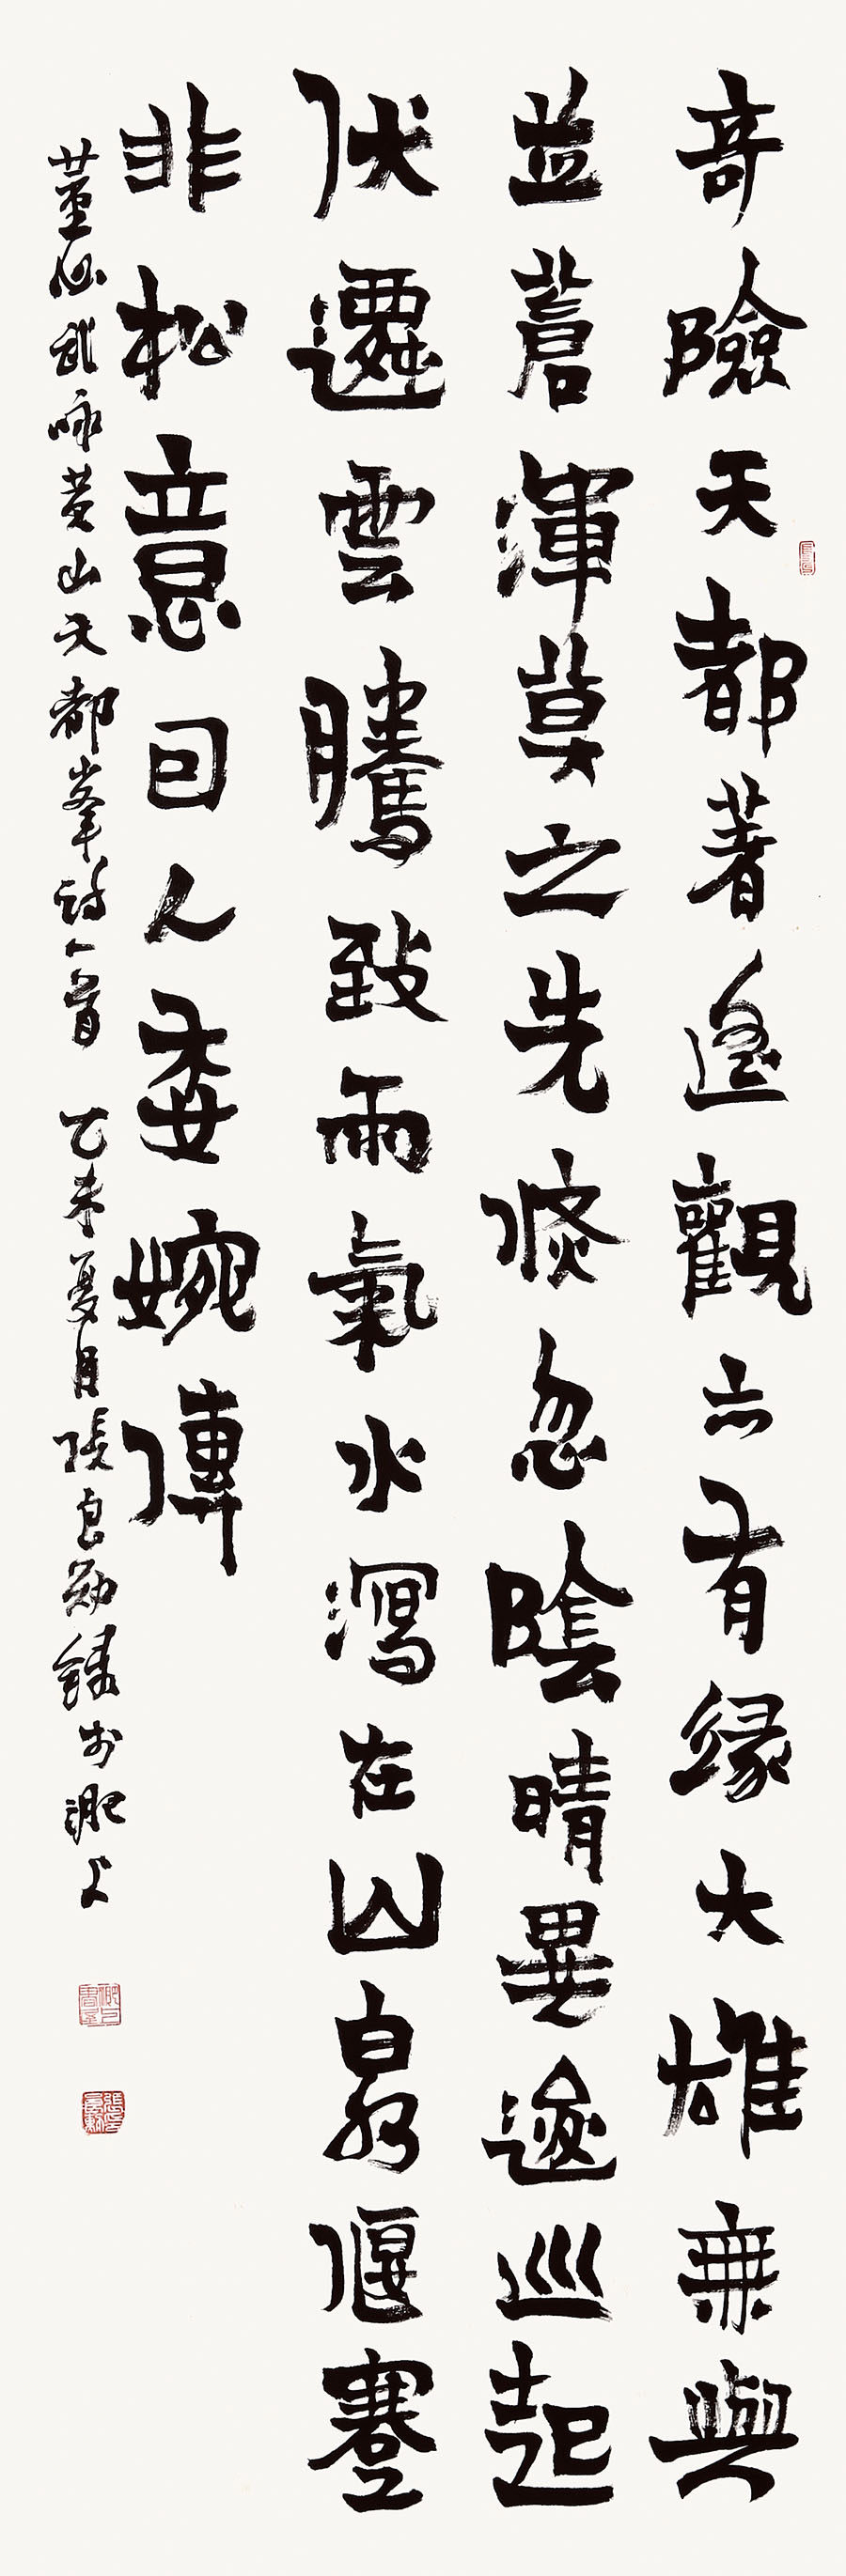 奇險天都著遥觀亦有緣大雄無與
並蒼渾莫之先倏忽陰晴異逡巡起
伏遷雲騰致雨氣水瀉在山泉偃蹇
非松意回人委婉傳
董必武咏黄山天都峯詩一首 乙未夏月張良勛錄於淝上